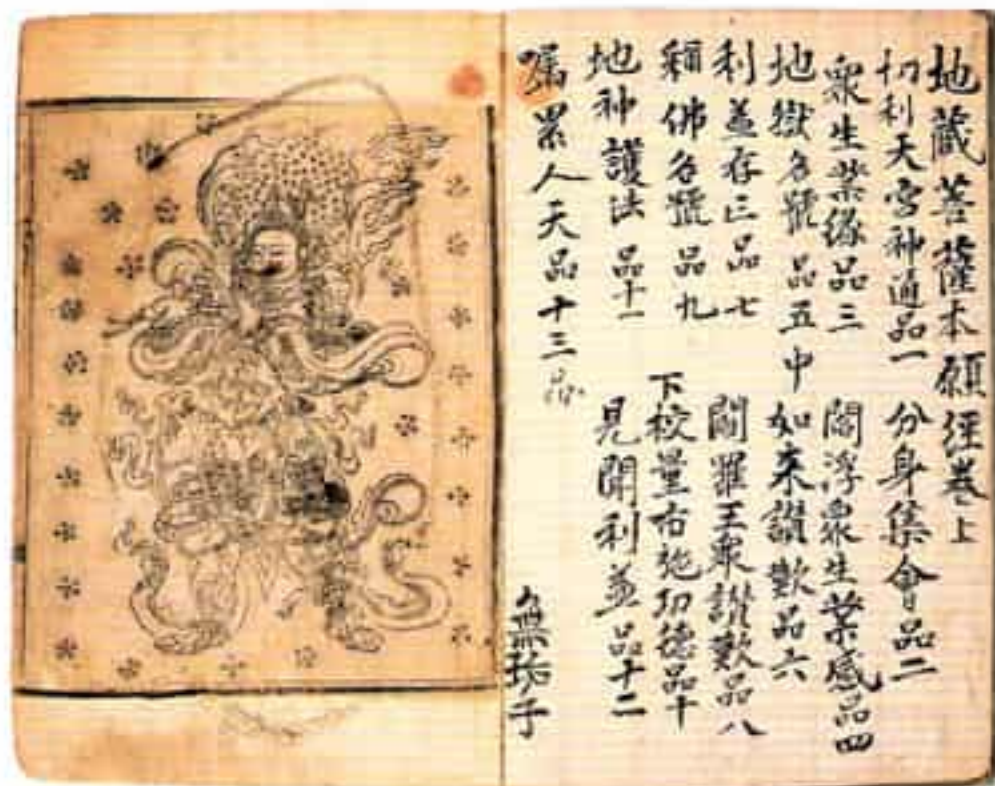 地藏菩薩本願経卷上
忉利天宮神通品一 分身集會品二
衆生業緣品三 閻浮衆生業感品四
地獄名號品五中 如来讃歎品六
利益存亡品七 閻羅王衆讃歎品八
稱佛名號品九 下校量布施功德品十
地神護法品十一 見聞利益品十二
囑累人天品十三
無垢子